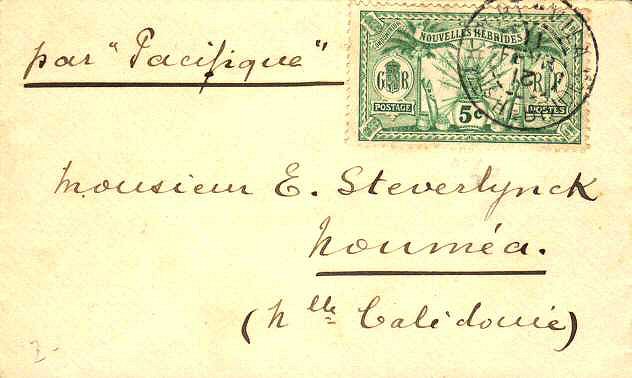 par "Pacifique"
NOUVELLES HÉBRIDES
G R
R F
POSTAGE
5c
POSTES
Monsieur E. Steverlynck
Nouméa.
(Nlle Calédonie)
2-